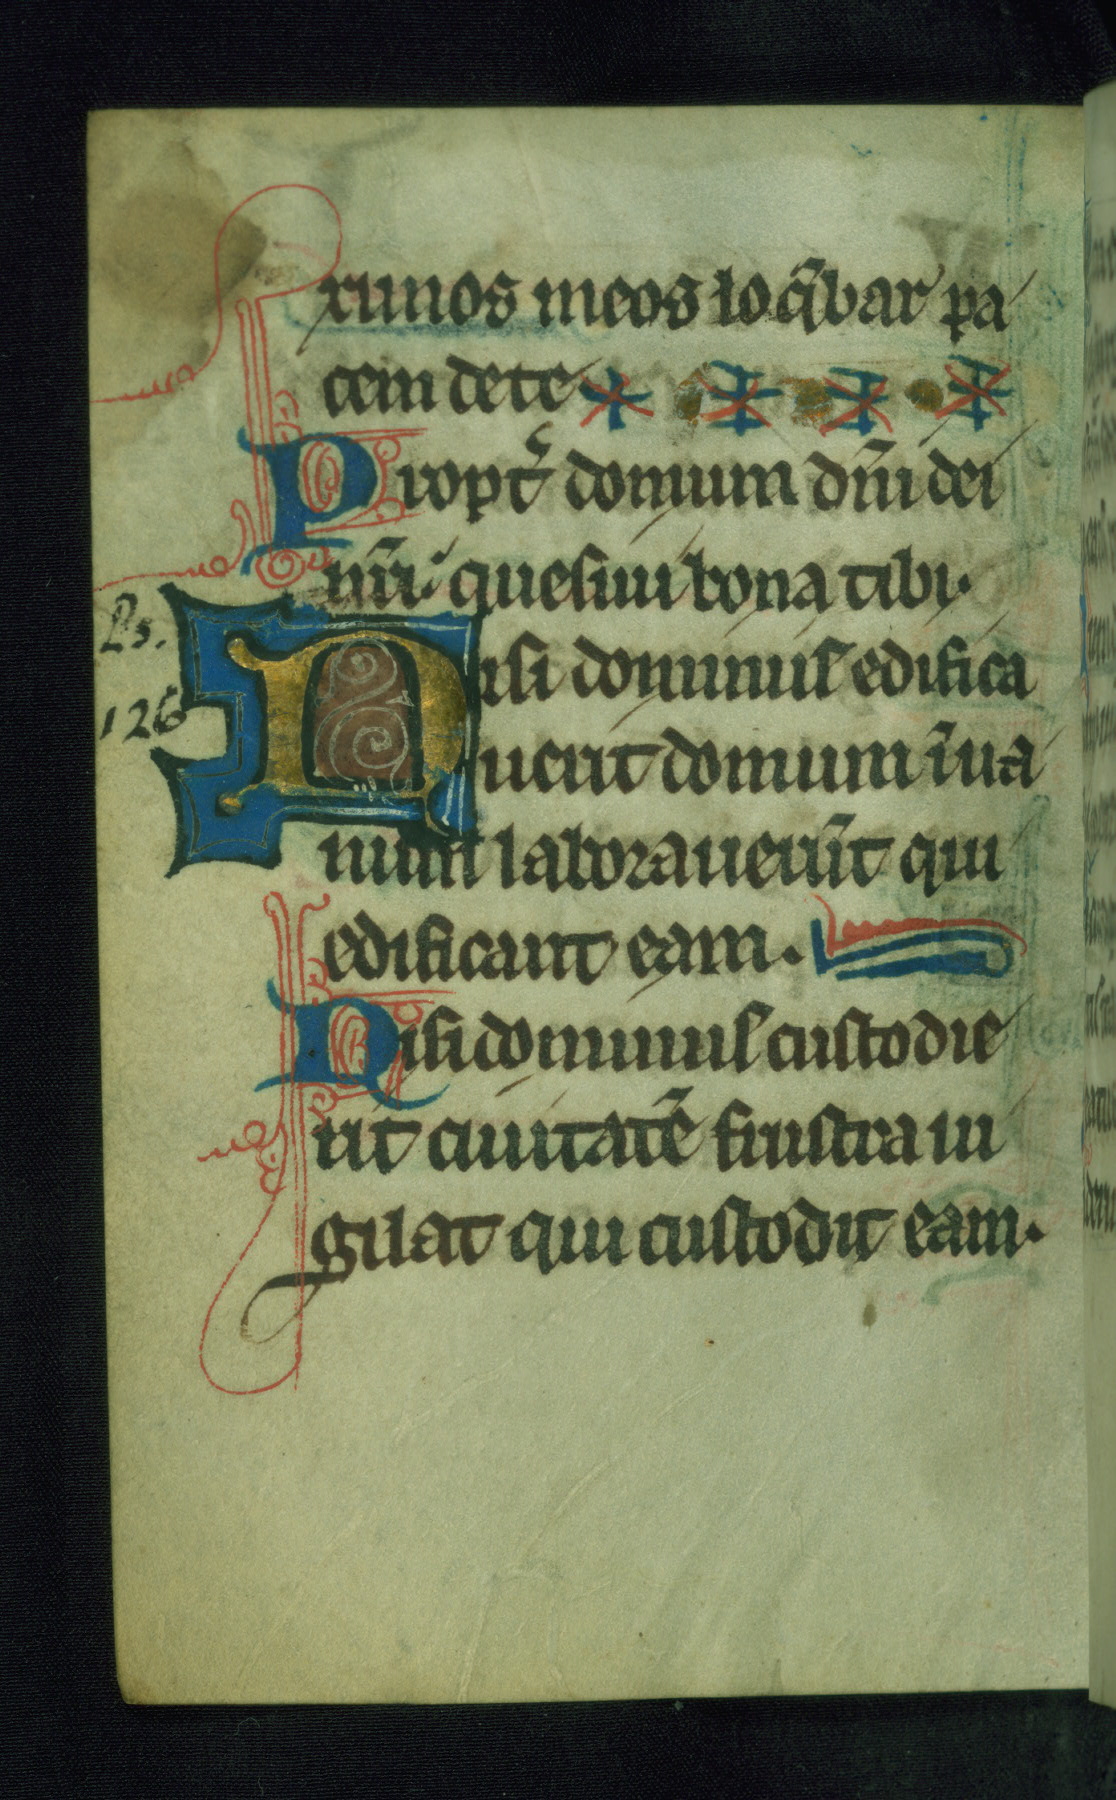 ximos meos loq̄bar pa
cem dete
Propt̄ domum dn̄i dei
nr̄i quesiui bona tibi.
Ps.
126
Nisi dominus edifica
uerit domum īua
num laborauerūt qui
edificant eam.
Nisi dominus custodie
rit ciuitatē frustra ui
gilat qui custodit eam.